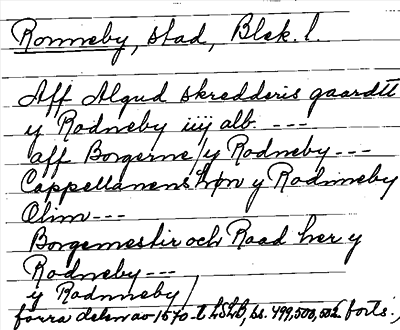 Ronneby, stad, Blek. l.
Aff Algud skredderis gaardtt
y Rodneby iiij alb. ---
aff Borgerne y Rodneby ---
Cappellanens høn y Rodineby
Olim ---
Borgemestir och Raad her y
Rodneby ---
y Rodnmeby
förra delen av 1570-t LSLB, ss. 499,500,502 (forts.)